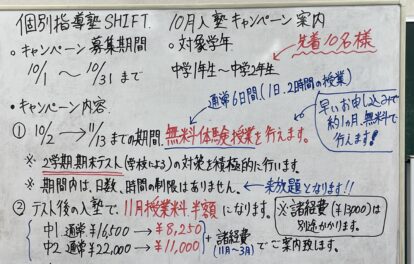 個別指導塾SHIFT. 10月入塾キャンペーン案内
○キャンペーン募集期間
10/1 〜 10/31 まで
○対象学年
先着10名様
中学1年生〜中学2年生
・キャンペーン内容.
通常6日間.(1日.2時間の授業)
① 10/2 → 11/13までの期間.無料体験授業を行えます。
早いお申し込みで
約1ヶ月.無料で
行えます!
※ 2学期期末テスト(学校による)の対策を積極的に行います。
※ 期間内は、日数、時間の制限はありません。 ← 来放題となります!!
② テスト後の入塾で、11月授業料半額になります。
※諸経費(¥13000)は
別途かかります。
中1.通常¥16,500 → ¥8,250
中2 通常¥22,000 → ¥11,000
+諸経費でご案内致します。
(11月〜3月)